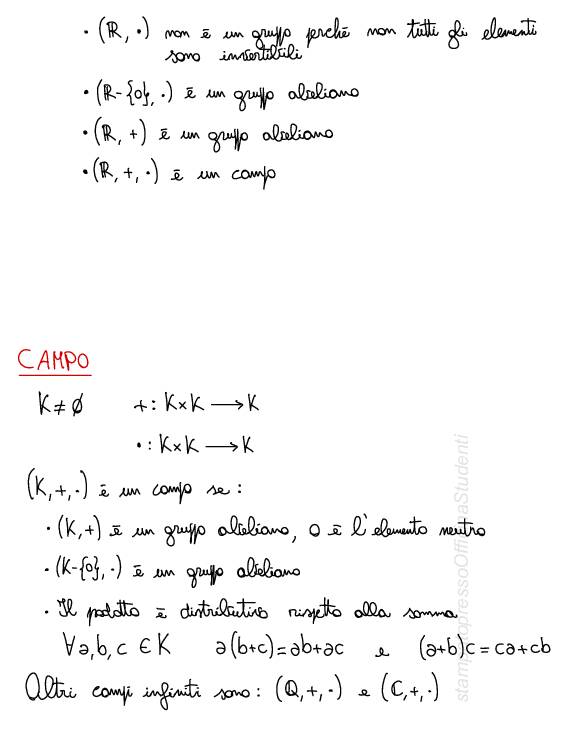 • (ℝ, •) non è un gruppo perché non tutti gli elementi
sono invertibili
• (ℝ-{0}, •) è un gruppo abeliano
• (ℝ, +) è un gruppo abeliano
• (ℝ, +, •) è un campo
CAMPO
K ≠ ∅ + : K×K → K
• : K×K → K
(K, +, •) è un campo se :
• (K, +) è un gruppo abeliano, 0 è l'elemento neutro
• (K-{0}, •) è un gruppo abeliano
• Il prodotto è distributivo rispetto alla somma
∀a, b, c ∈ K a(b+c) = ab+ac e (a+b)c = ca+cb
Altri campi infiniti sono : (ℚ, +, •) e (ℂ, +, •)